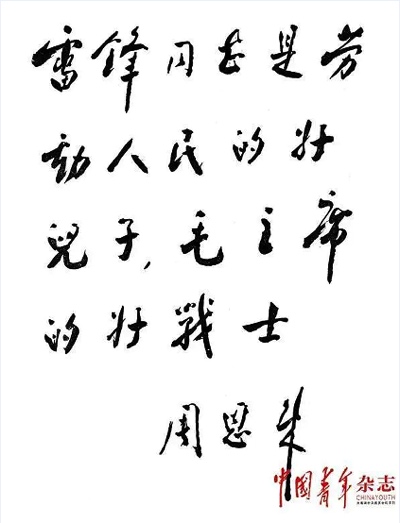 雷锋同志是劳
动人民的壮
兒子，毛主席
的壮戰士
周恩来
中國青年杂志
CHINAYOUTH